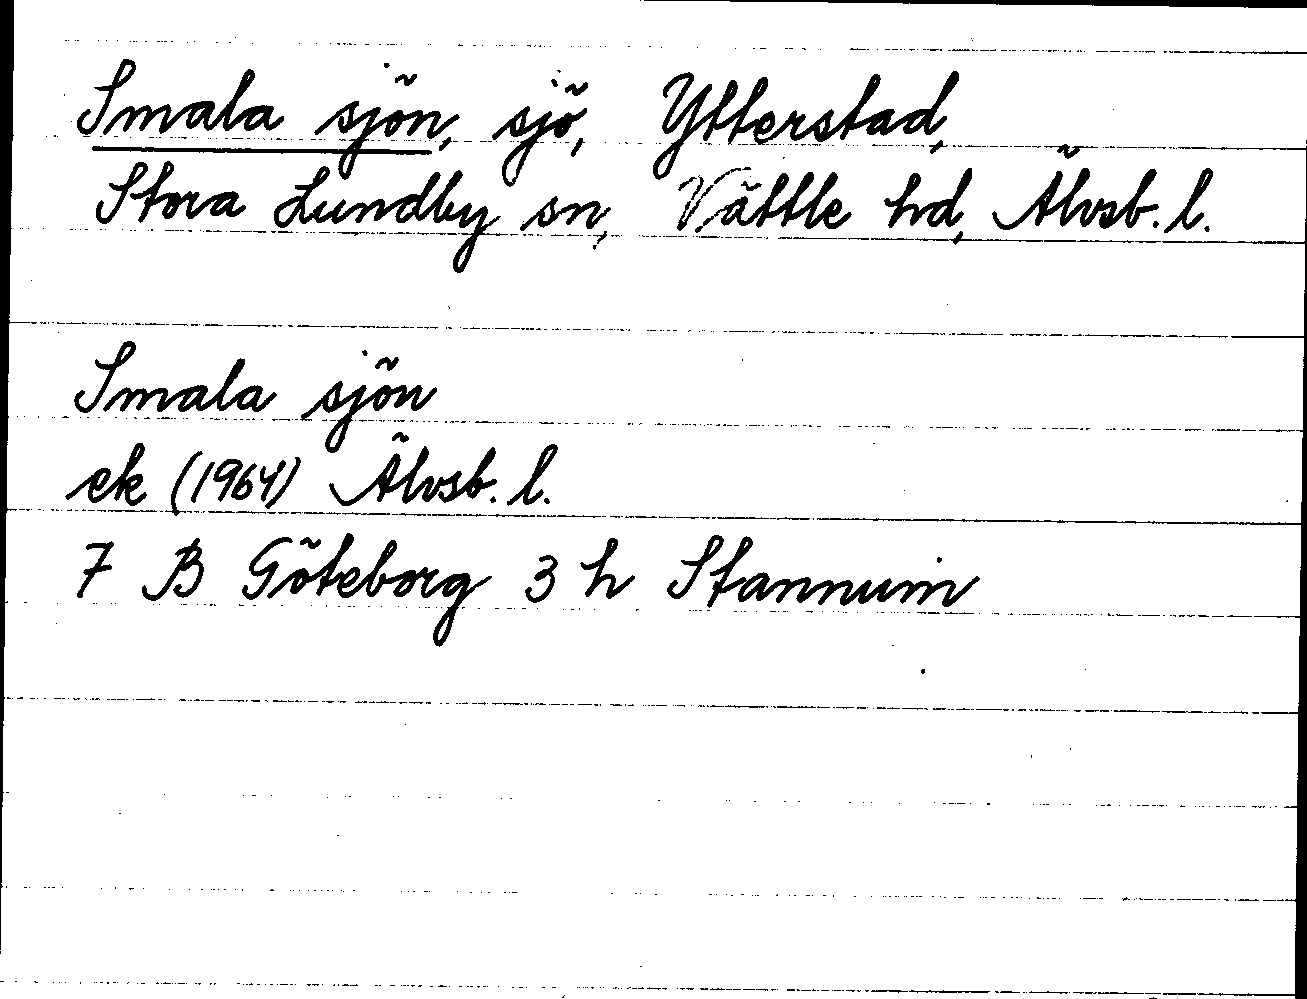 Smala sjön, sjö, Ytterstad,
Stora Lundby sn, Vättle hd, Älvsb. l.
Smala sjön
ek (1964) Älvsb. l.
7 B Göteborg 3 h Stannum